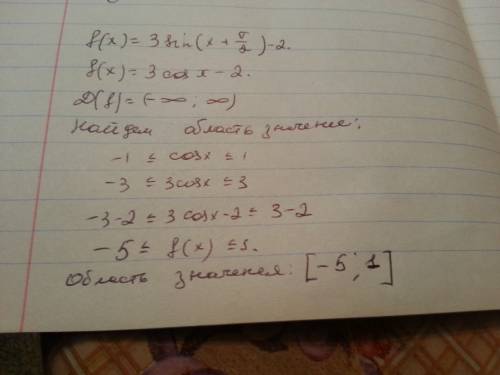 f(x) = 3 sin(x + π/2) - 2.
f(x) = 3 cos x - 2.
D(f) = (-∞; ∞)
Найдем область значение:
-1 ≤ cos x ≤ 1
-3 ≤ 3cos x ≤ 3
-3-2 ≤ 3 cos x - 2 ≤ 3-2
-5 ≤ f(x) ≤ 1.
Область значения: [-5; 1]